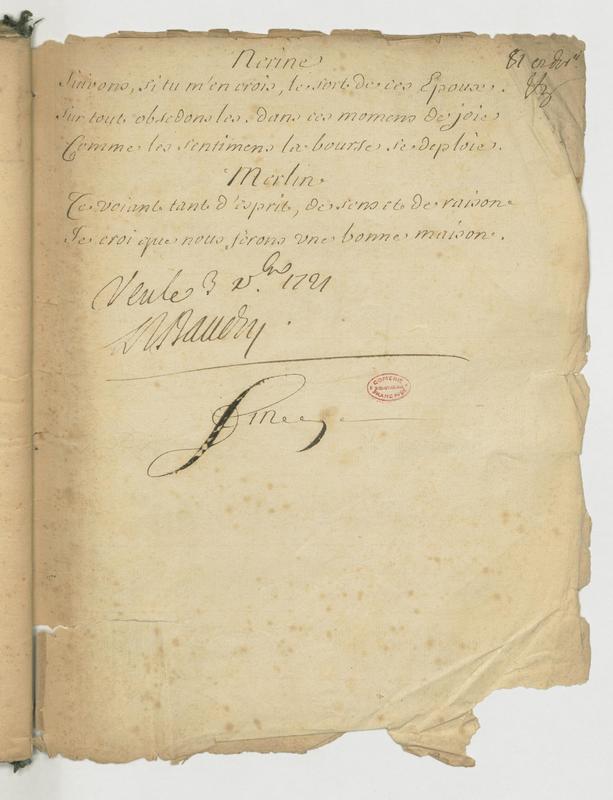 Nerine
Suivons, si tu m'en crois, le sort de ces Epoux.
Sur tout obsedons les. dans ces momens de joie
Comme les sentimens la bourse se deploie.
Merlin
Te voiant tant d'esprit, de sens et de raison
Je croi que nous ferons une bonne maison.
Veu le 3 x.bre 1721
Baudry
Fin
COMEDIE
FRANCAISE